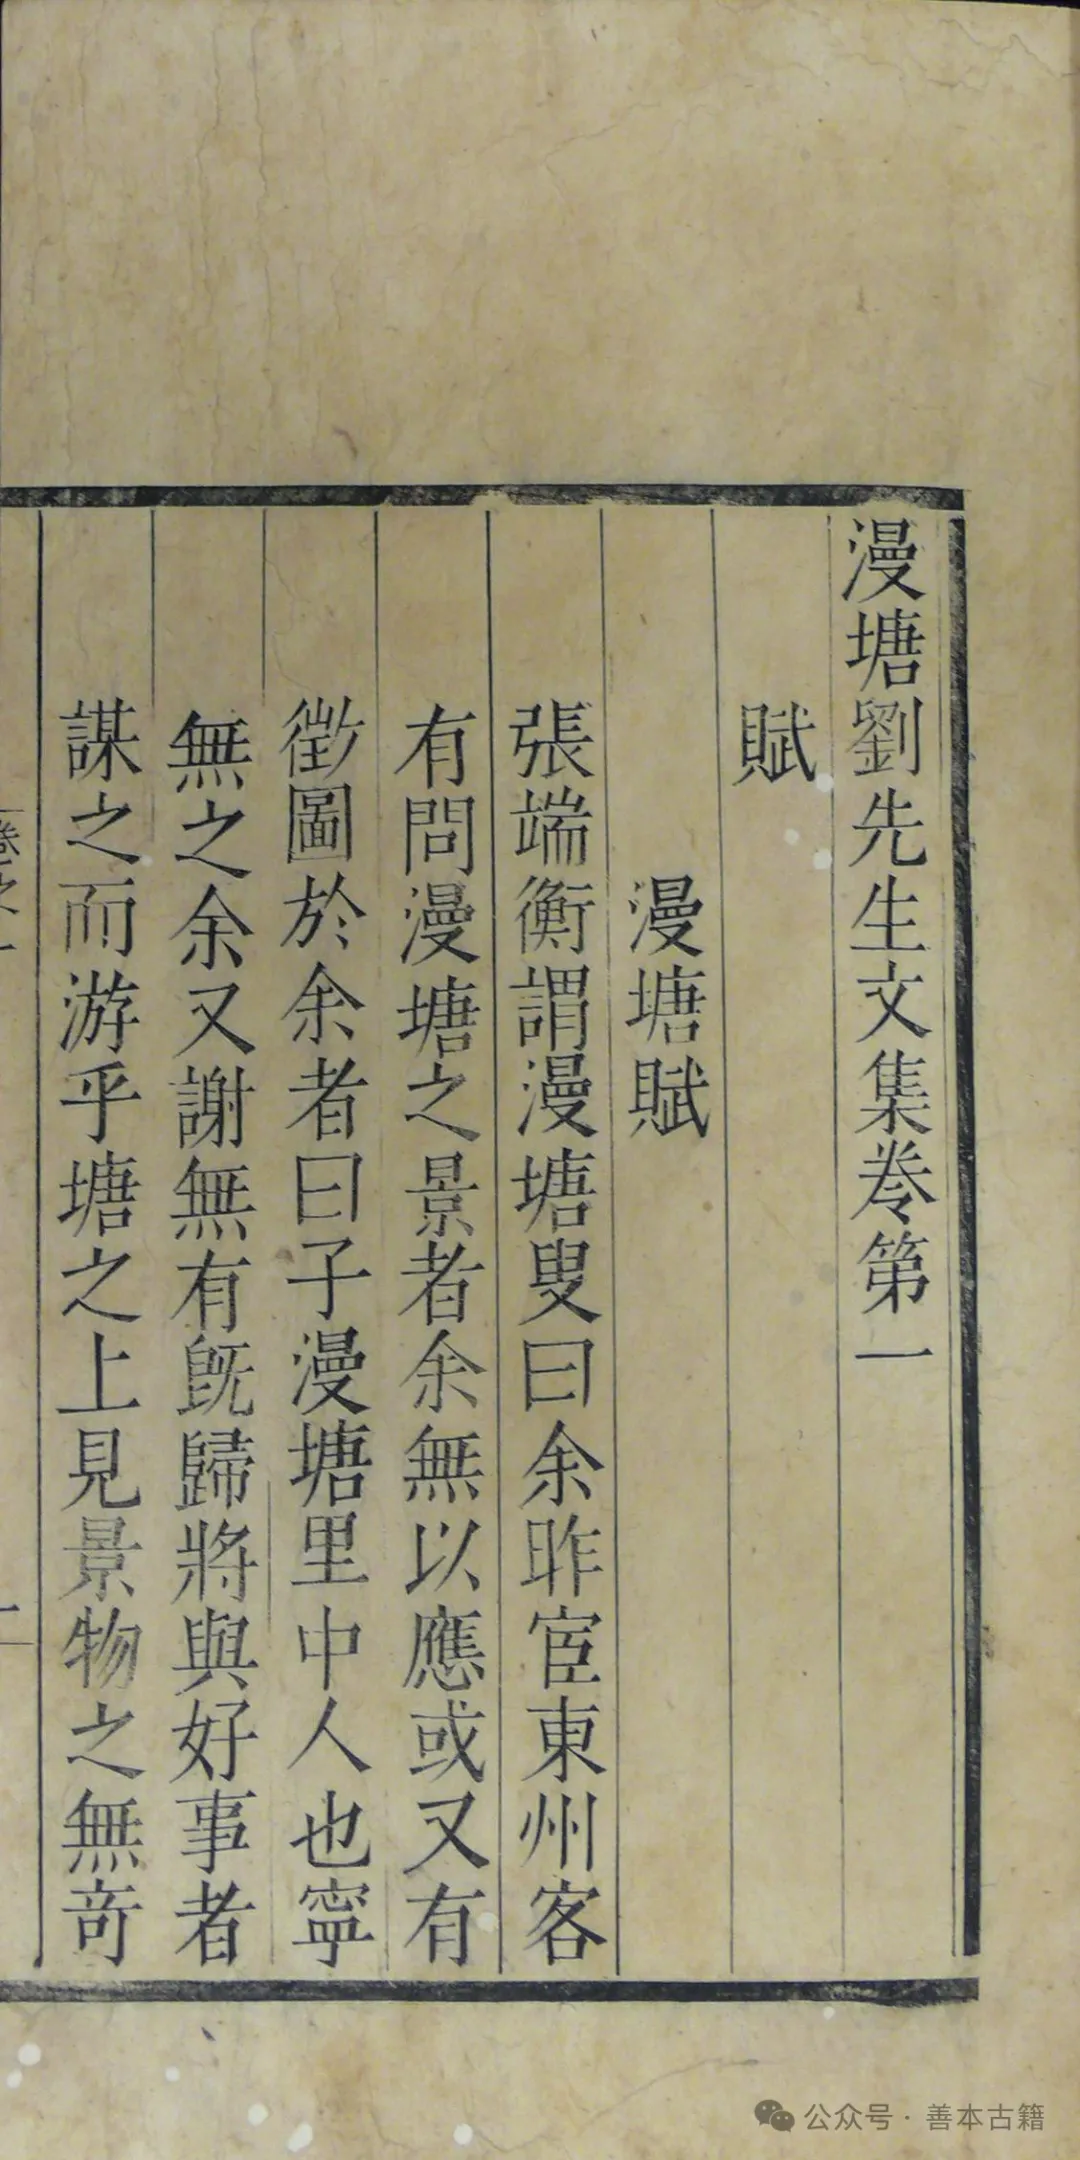 漫塘劉先生文集卷第一
賦
漫塘賦
張端衡謂漫塘叟曰余昨宦東州客
有問漫塘之景者余無以應或又有
徵圖於余者曰子漫塘里中人也寧
無之余又謝無有旣歸將與好事者
謀之而游乎塘之上見景物之無奇
卷之一
一
公众号·善本古籍